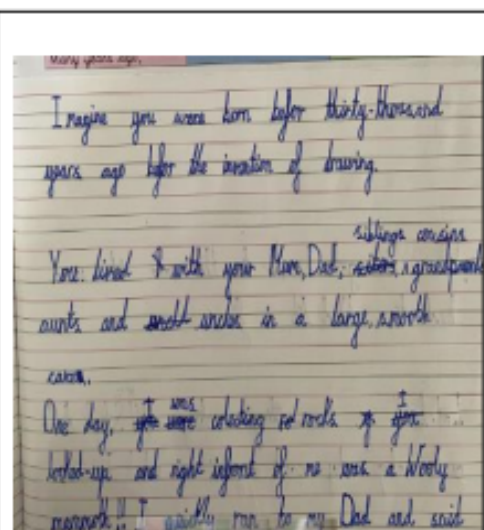 many years ago.
Imagine you were born befor thirty-thousand
years ago befor the invention of drawing.
siblings cousins
You lived with your Mum, Dad, grandparents
aunts and uncles in a large, smooth
One day, I was colecting red rocks I
looked-up and right infront of me was a Wooly
mammoth!! I quickly ran to my Dad and said